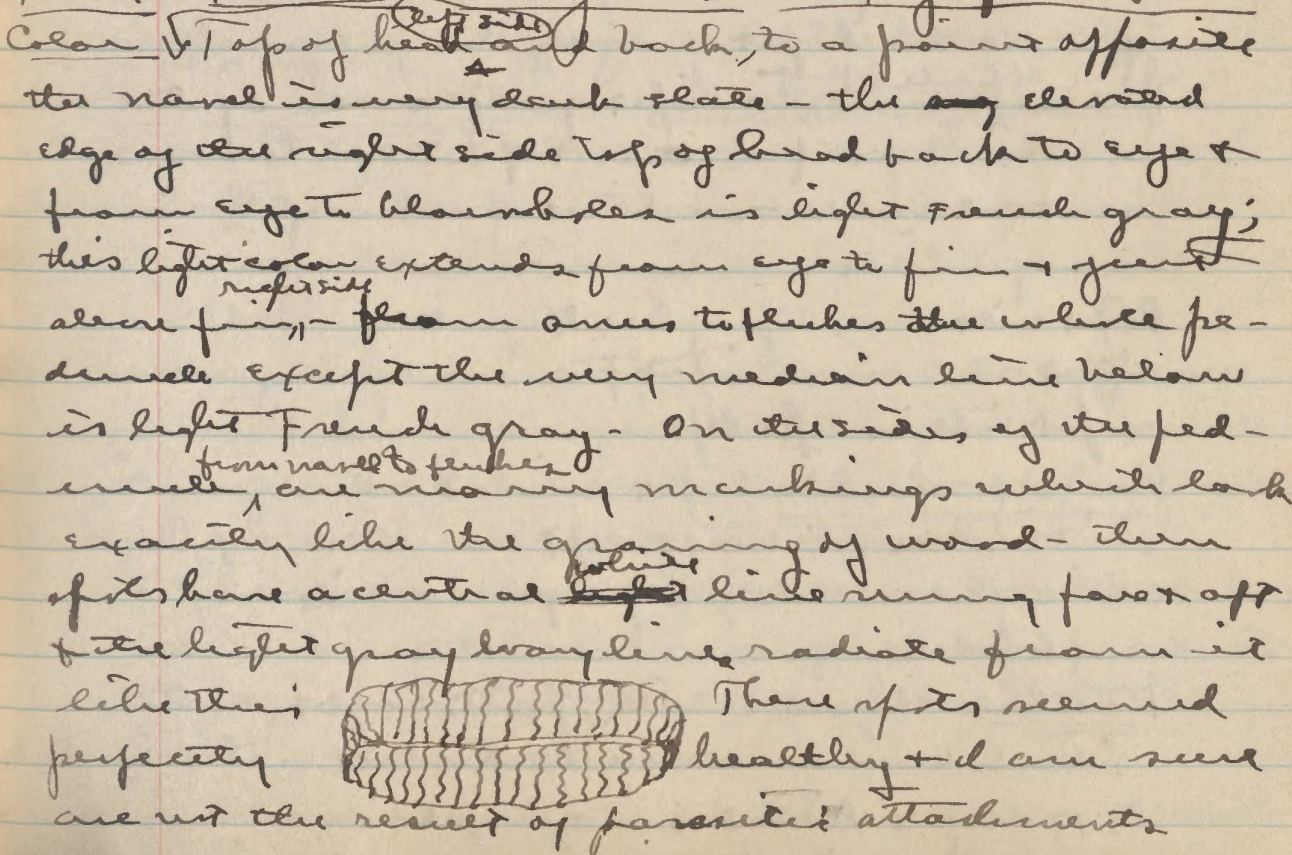 (left side)
Color Top of head and back, to a point opposite
the navel is very dark slate – the elevated
edge of the right side top of head back to eye +
from eye to blowholes is light French gray;
this light color extends from eye to fin + just
right side
above fin, – from anus to flukes the whole pe-
duncle except the very median line below
is light French gray – On the sides of the ped-
from navel to flukes
uncle ^ are many markings which look
exactly like the graining of wood – these
white
spots have a central light line running fore + aft
+ the light gray wavy lines radiate from it
like this These spots seemed
perfectly healthy + I am sure
are not the result of parasitic attachments